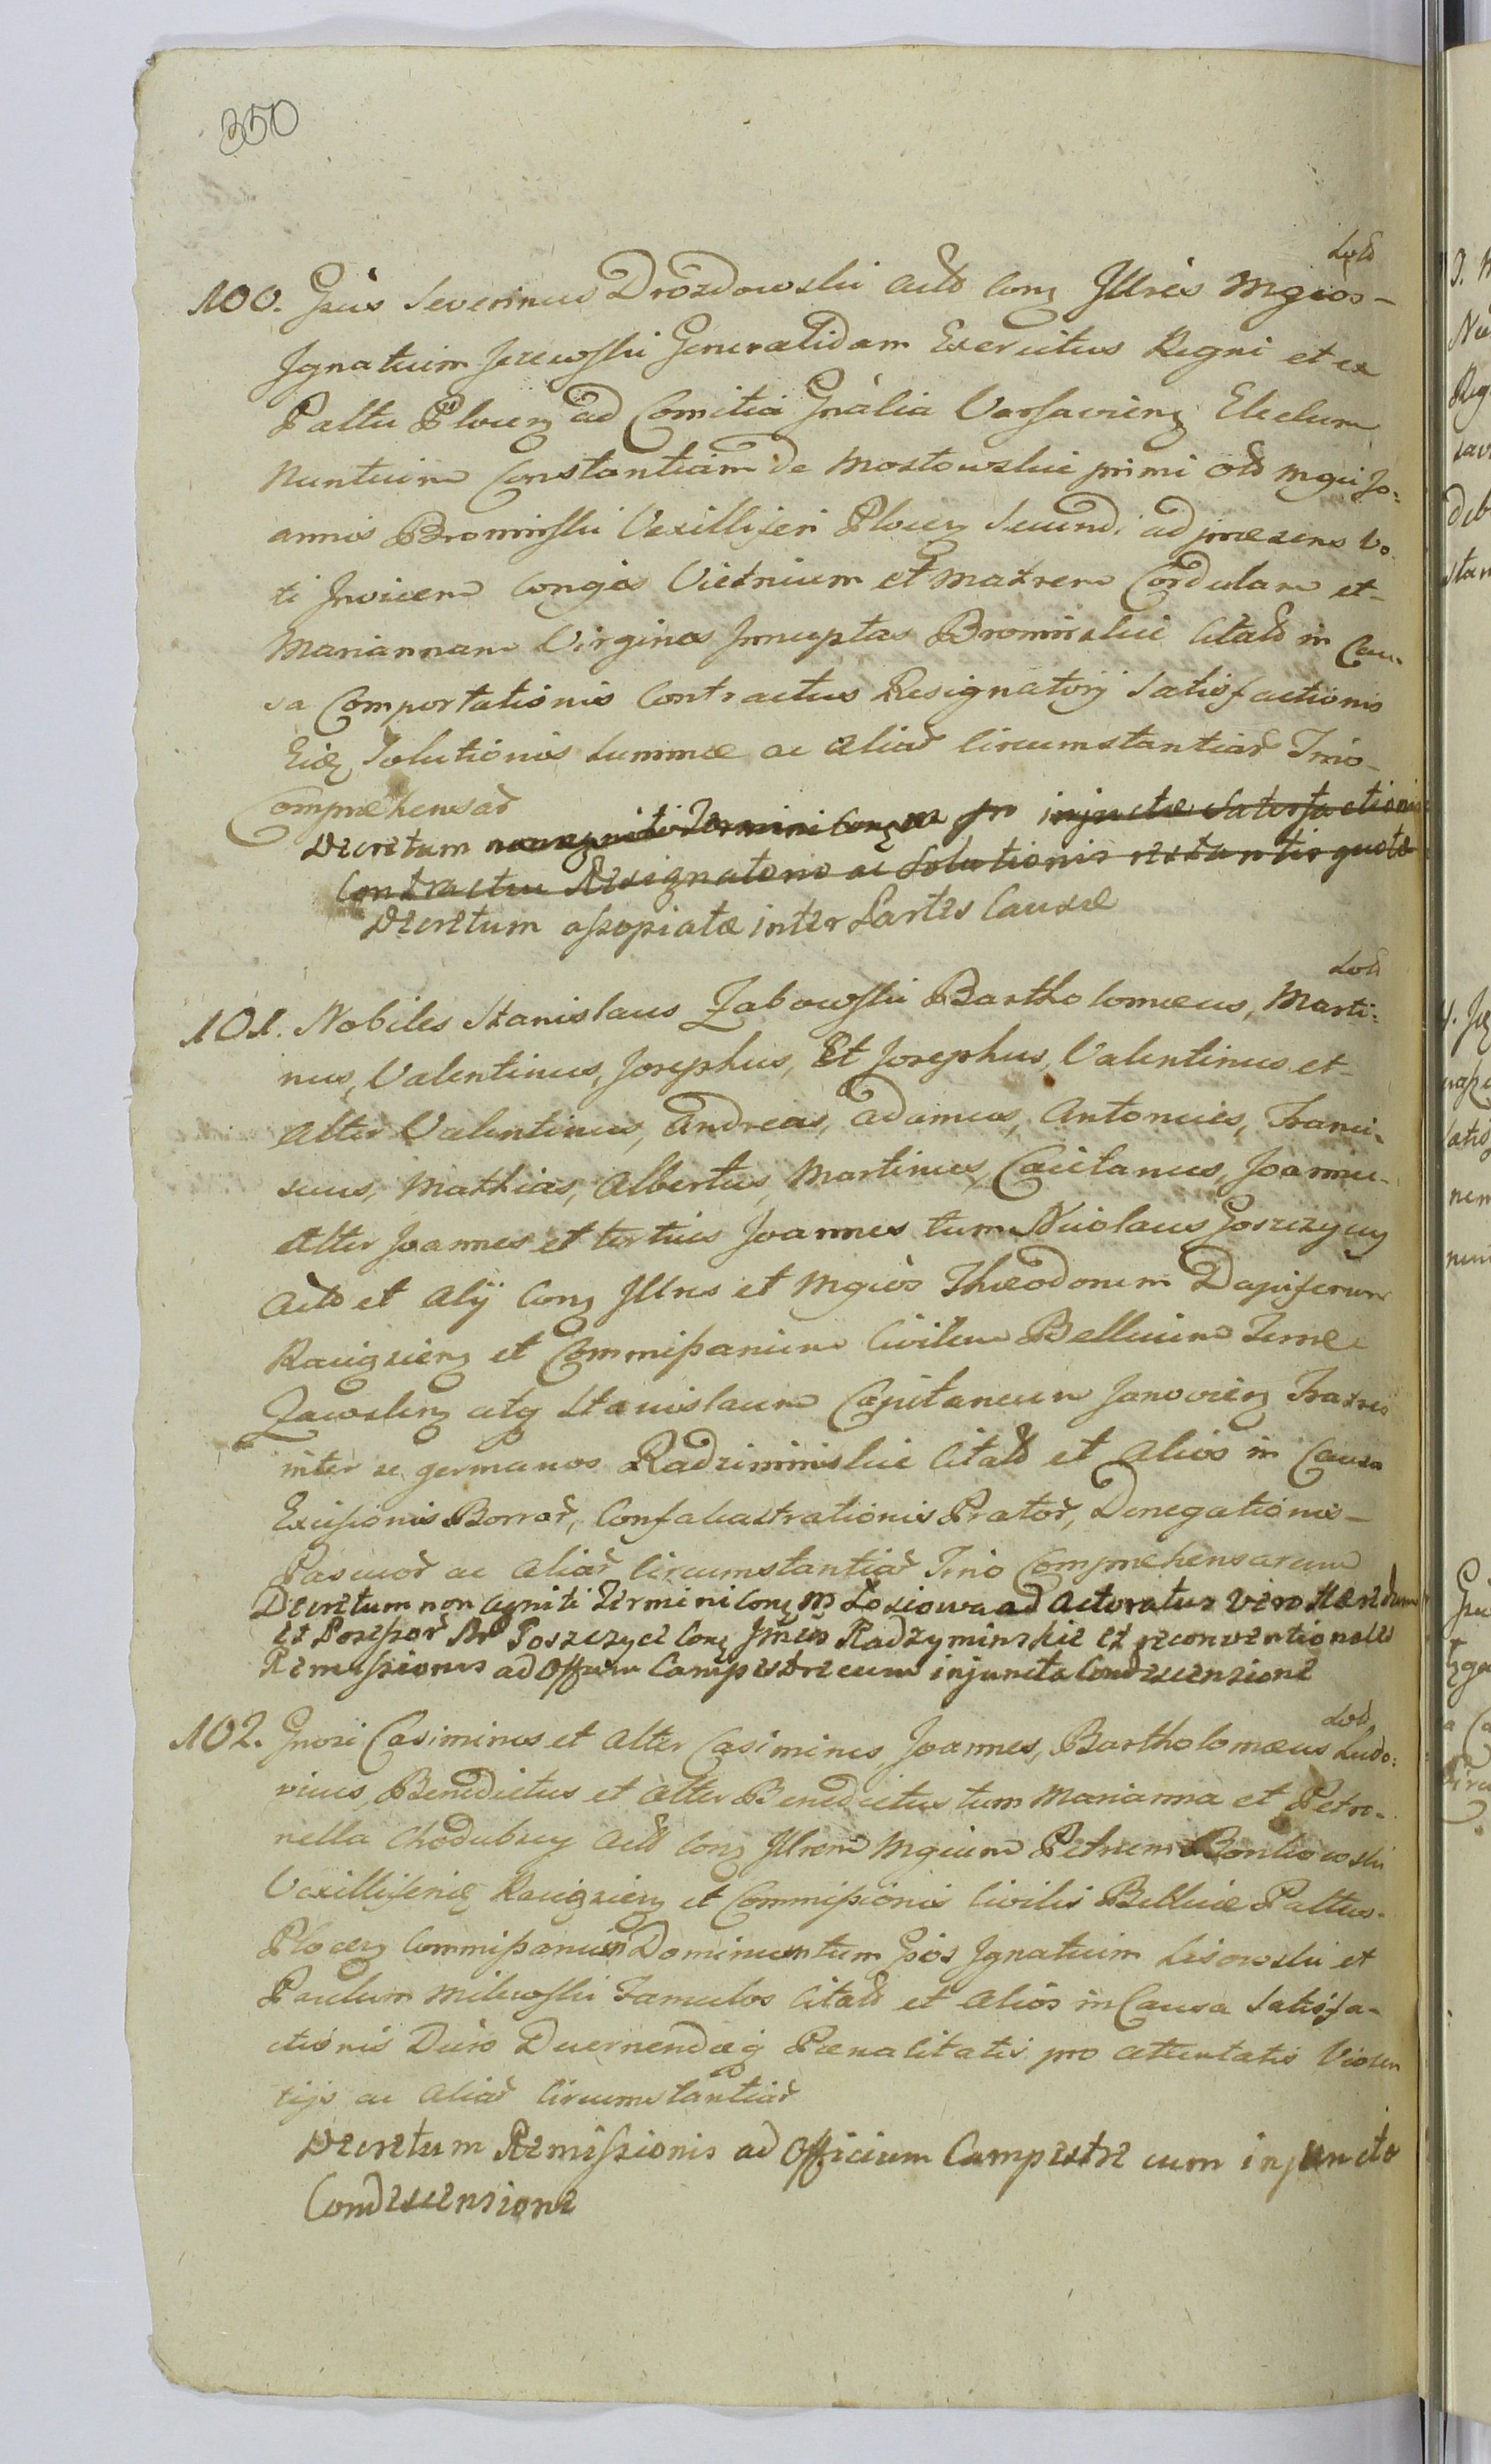 350
100. Gsus Severinus Drozdowski Actd Cong Illres Mgcos -
Ignatium Jezewski Generalidam Exercitus Regni et ex
Paltu Plocen ad Comitia Gnalia Varsavien Electum
Nuntium Constantiam de Mostowskie primi olds Mgci Jo:
annis Bromirski Vexilliferi Plocen Secundi ad praesens vo
ti Invicem Conges Victnium et Matrem Cordulam et -
Mariannam Virgines Innuptas Bromirskie Citatd in Cau
sa Comportationis Contractus Resignatorij Satisfactionis
Eidq Solutionis Summae ac aliar circumstantiar Trio -
Compraehensar
Decretum non agniti Termini Cong pro injunctae Satisfactionis
Contractui Resignatorio ac Solutionis restantis quotae
Decretum assopiatae inter Partes Causae
101. Nobiles Stanislaus Zabowski Bartholomaeus, Marti:
nus, Valentinus, Josephus, Et Josephus, Valentinus et -
Alter Valentinus, Andreas, Adamus, Antonius, Franci-
scus, Mathias, Albertus, Martinus, Caietanus, Joannes
Alter Joannes et tertius Joannes tum Nicolaus Goszczycy
Actd et alij Cong Illres et Mgcos Theodorum Dapiferum
Raciązien et Commissarium Civilem Bellicum Terrae
Zawskrz atq Stanislaum Capitaneum Janovien Fratres
inter se germanos Radziminskie Citatd et alios in Causa
Excisionis Borrar, Confalcastrationis Prator, Denegationis -
Pascuor ac aliar circumstantiar Trio Comprehensarum
Decretum non agniti Termini Cong M Losiowa ad Actoratum vero Haeredum
et Possessor Br Goszczyce Cong Jmcis Radzyminskie et reconventionales
Remissionis ad Offium Campestre cum injuncta Condescensione
102. Gnosi Casimirus et Alter Casimirus, Joannes, Bartholomaeus Ludo:
vicus, Benedictus et Alter Benedictus tum Marianna et Petro-
nella Chodubscy Actd Cong Illrem Mgcum Petrum Bonkowski
Vexilliferum Raciązien et Commissionis Civilis Bellicae Paltus -
Plocen Commissarium Dominum tum Gsos Ignatium Lisowski et
Paulum Milewski Famulos Citatd et Alios in Causa Satisfa-
ctionis Juris Decernendaeq Paenalitatis pro attentatis Violen
tijs ac aliar circumstantiar
Decretum Remissionis ad Officium Campestre cum injuncta
Condescensione